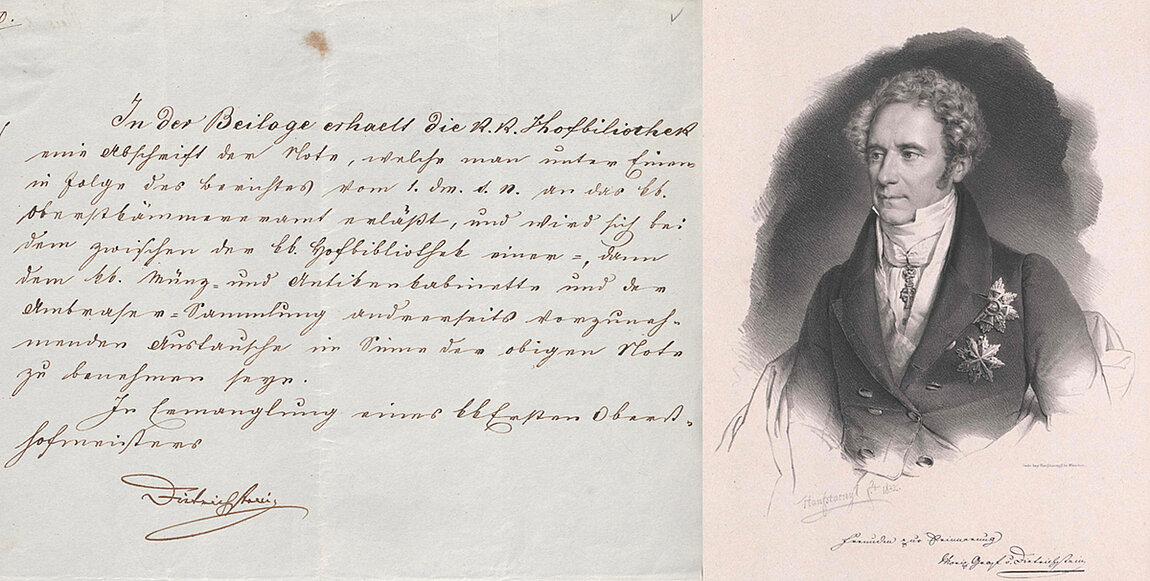 In der Beilage erhaelt die k.k. Hofbiliothek
eine Abschrift der Note, welche man unter Einem
in Folge des Berichtes vom 1. d. M. an das kk.
Oberstkämmereramt erläßt, und wird sich bei
dem zwischen der kk. Hofbibliothek einer=, dann
dem kk. Münz= und Antikenkabinette und der
Ambraser=Sammlung andrerseits vorzuneh=
menden Austausche im Sinne der obigen Note
zu benehmen seyn.
In Ermanglung eines kk Ersten Oberst=
hofmeisters
Dietrichstein
Hanfstaengl
Freunden zur Erinnerung
Moriz Graf v. Dietrichstein